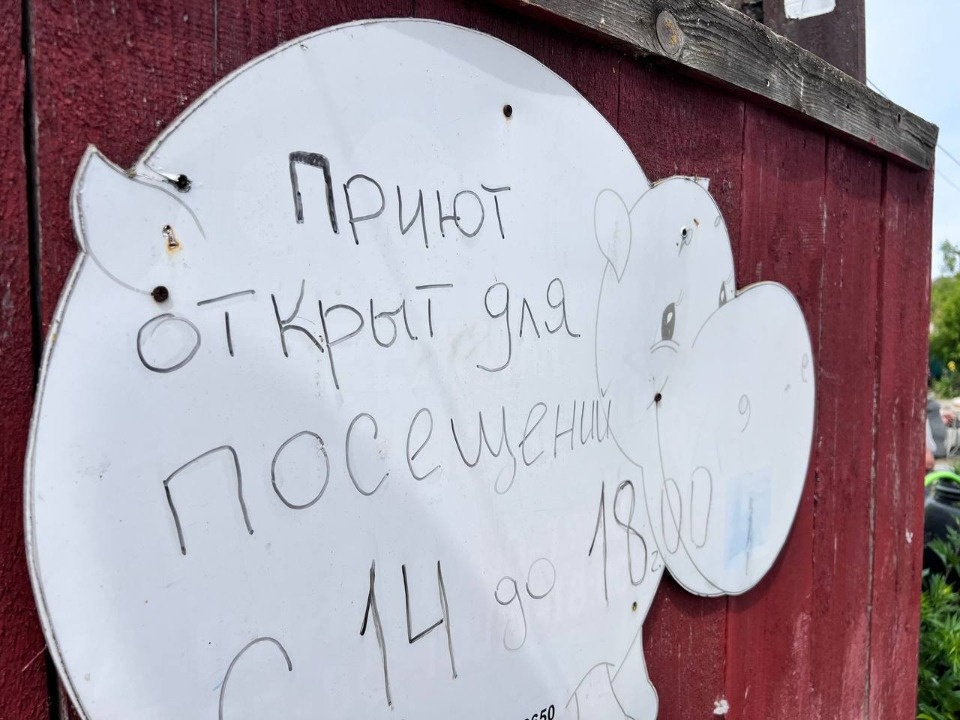 Приют
открыт для
посещений
с 14 до 18.00